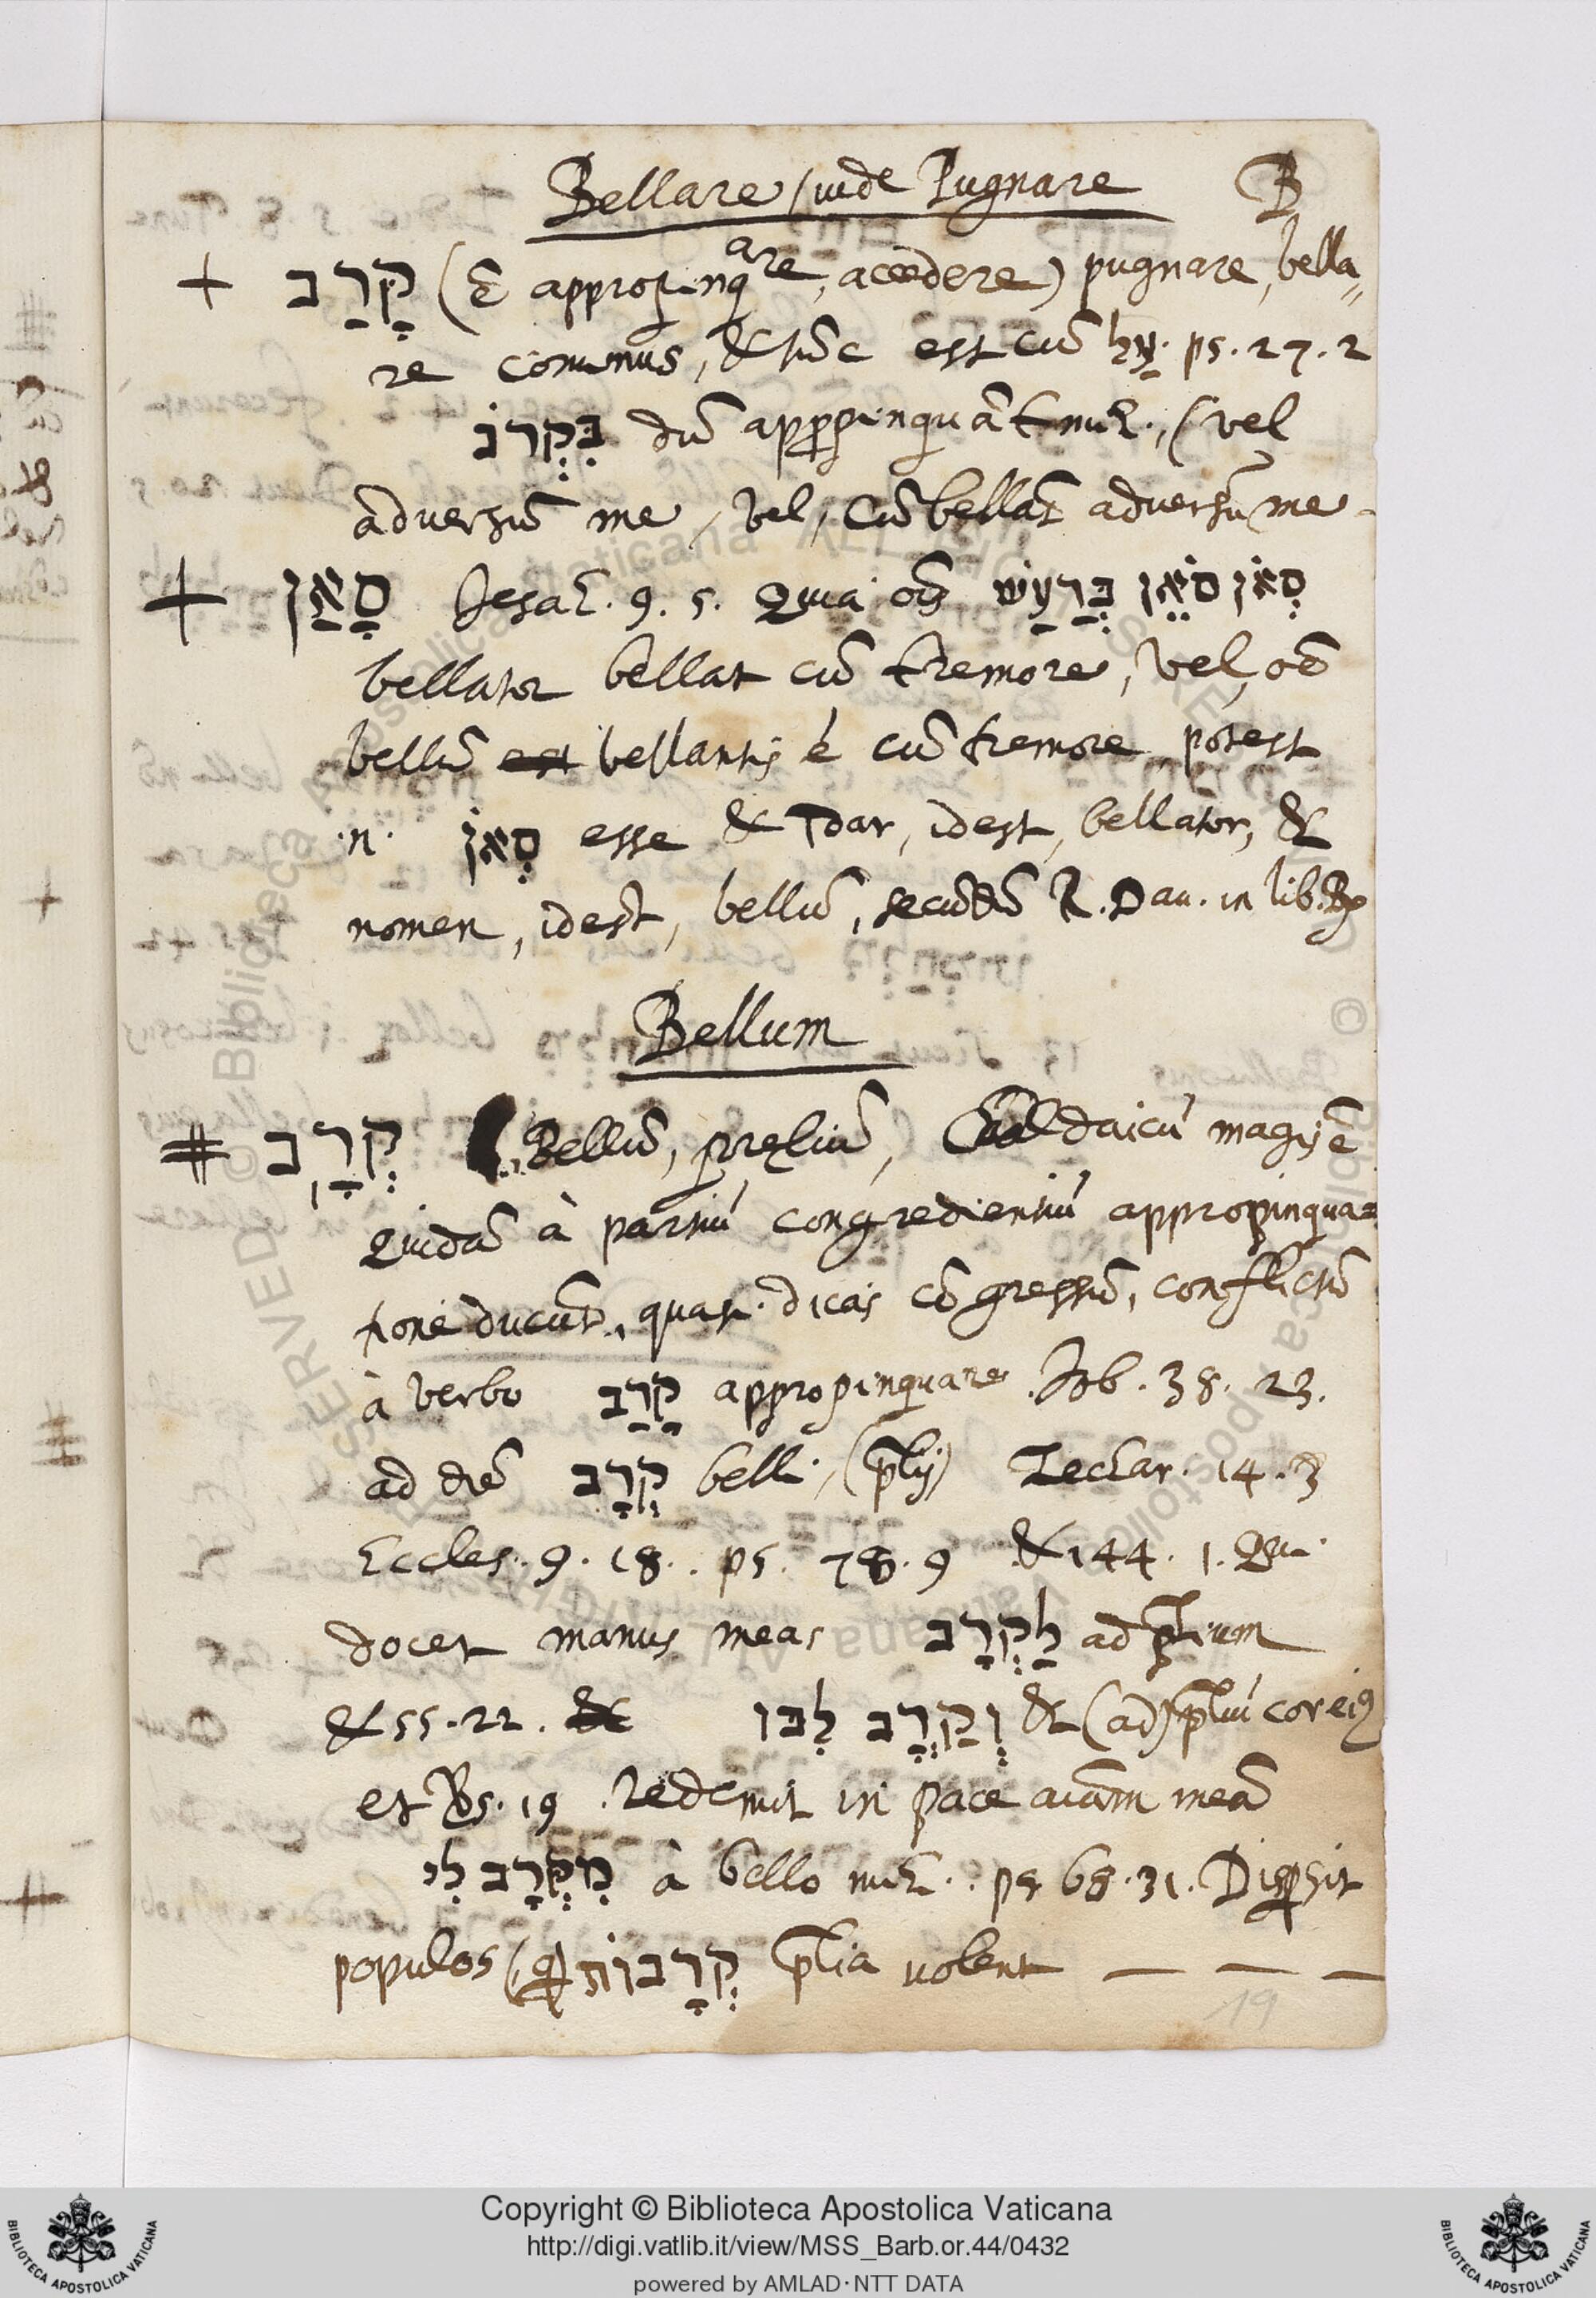 Bellare / uide Pugnare B
+ קָרַב (& appropinqare, accedere) pugnare, bella„
re cominus, & tūc est cū עַל. ps. 27. 2
בִּקְרֹב dū appropinquāt mihi., (vel
adversū me, vel, cū bellāt adversū me.
+ סָאַן Jesai. 9. 5. Quia oīs סְאוֹן סֹאֵן בְּרַעַשׁ
bellator bellat cū tremore, vel, oē
bellū est bellantis ē cū tremore potest
.n. סְאוֹן esse & Tdar, idest, bellator, &
nomen, idest, bellū, secūdū R. Dau. in lib.
Bellum
# קְרָב Bellū, pręliū, Caldaicū magis ē
Quidā à partiū congredientiū appropinqua=
tione ducūt, quasi dicas cōgressū, conflictū
à verbo קָרַב appropinquare. Job. 38. 23.
ad diē קְרָב belli, (p̄lij) Zechar. 14. 3
Eccles. 9. 18.. ps. 78. 9 & 144. 1. Qui
docet manus meas לַקְרָב ad p̄lium
& 55. 22. & וְקַרֲב לִבּוֹ & (ad) p̄liū cor ei9
et Vs. 19. redemit in pace aīam meā
מִקְּרָב לִי à bello mihi.. ps 68. 31. Dispersit
populos (q) קְרָבוֹת p̄lia uolent — — —
19
Copyright © Biblioteca Apostolica Vaticana
http://digi.vatlib.it/view/MSS_Barb.or.44/0432
powered by AMLAD·NTT DATA
BIBLIOTECA APOSTOLICA VATICANA
BIBLIOTECA APOSTOLICA VATICANA